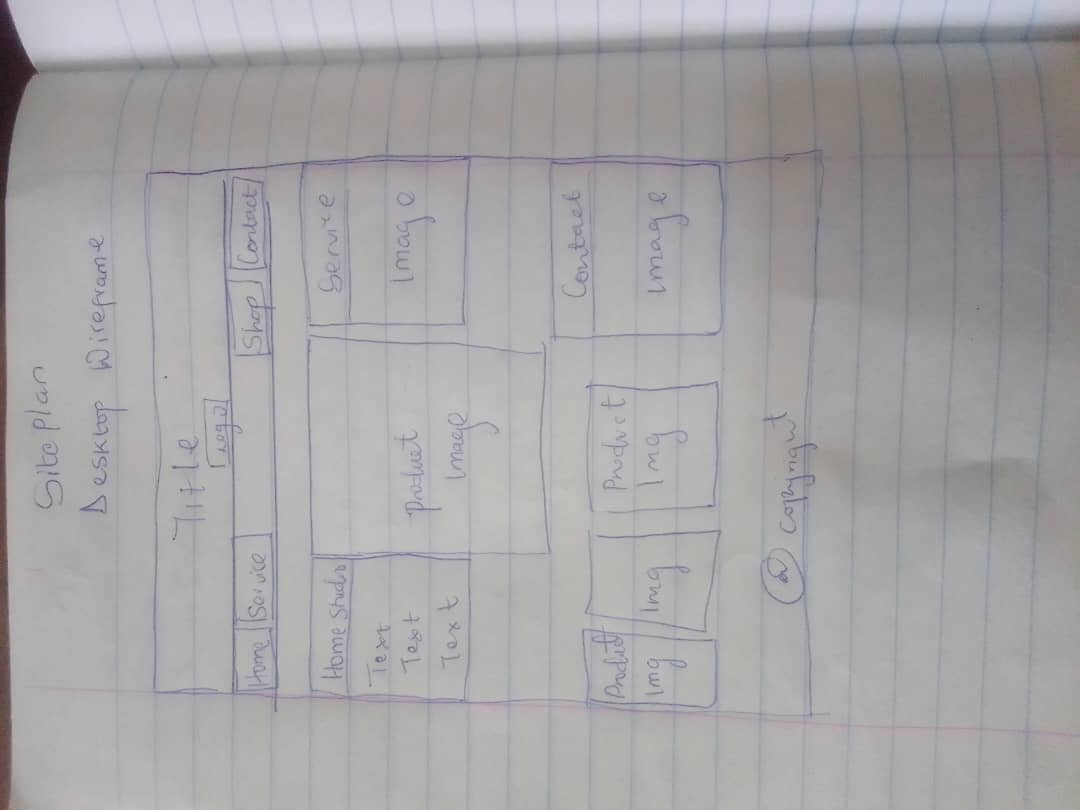 Site Plan
Desktop Wireframe
Title
Logo
Home Service Shop Contact
Home Studio
Text
Text
Text
Product
Image
Service
Image
Product
Img
Img
Product
Img
Contact
Image
@ Copyright